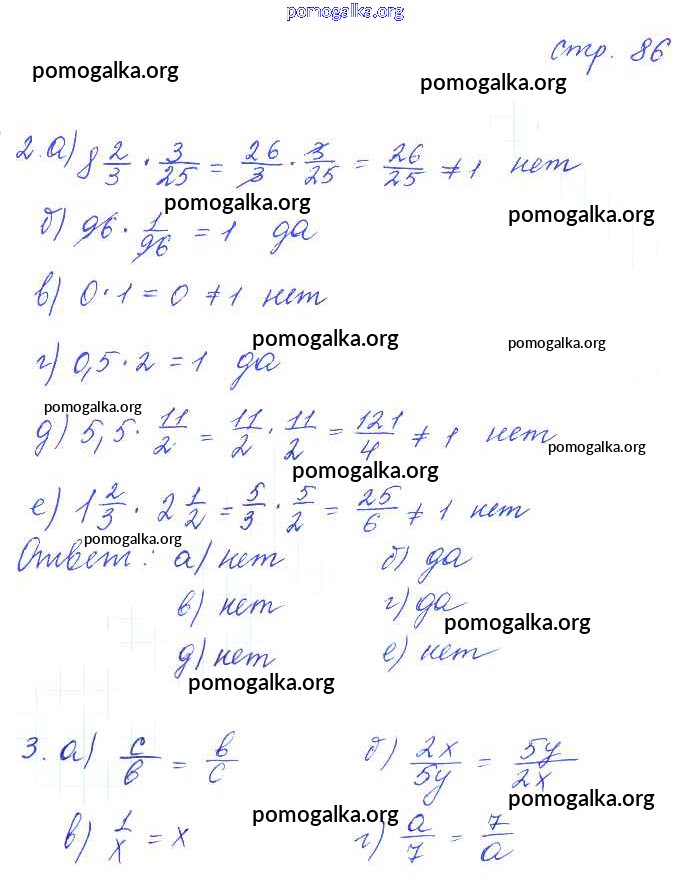 pomogalka.org
стр. 86
pomogalka.org pomogalka.org
2. а) 8 2/3 · 3/25 = 26/3 · 3/25 = 26/25 ≠ 1 нет
pomogalka.org pomogalka.org
б) 96 · 1/96 = 1 да
в) 0 · 1 = 0 ≠ 1 нет
pomogalka.org pomogalka.org
г) 0,5 · 2 = 1 да
pomogalka.org
д) 5,5 · 11/2 = 11/2 · 11/2 = 121/4 ≠ 1 нет
pomogalka.org
pomogalka.org
е) 1 2/3 · 2 1/2 = 5/3 · 5/2 = 25/6 ≠ 1 нет
pomogalka.org
Ответ: а) нет б) да
в) нет г) да
pomogalka.org
д) нет е) нет
pomogalka.org
3. а) c/b = b/c б) 2x/5y = 5y/2x
pomogalka.org pomogalka.org
в) 1/x = x г) a/7 = 7/a